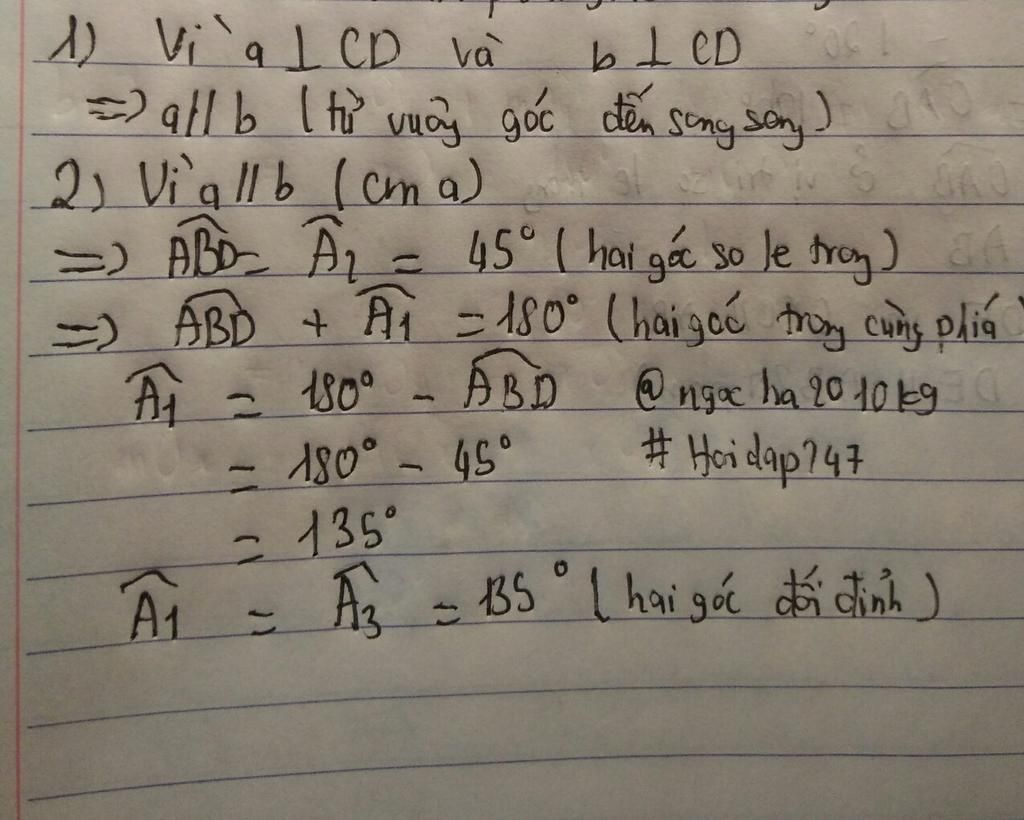 1) Vì a ⊥ CD và b ⊥ CD
=> a // b (từ vuông góc đến song song)
2) Vì a // b (cm a)
=> \widehat{ABD} = \widehat{A_2} = 45° (hai góc so le trong)
=> \widehat{ABD} + \widehat{A_1} = 180° (hai góc trong cùng phía)
\widehat{A_1} = 180° - \widehat{ABD} @ngocha2010kg
= 180° - 45° #Hoidap247
= 135°
\widehat{A_1} = \widehat{A_3} = 135° (hai góc đối đỉnh)